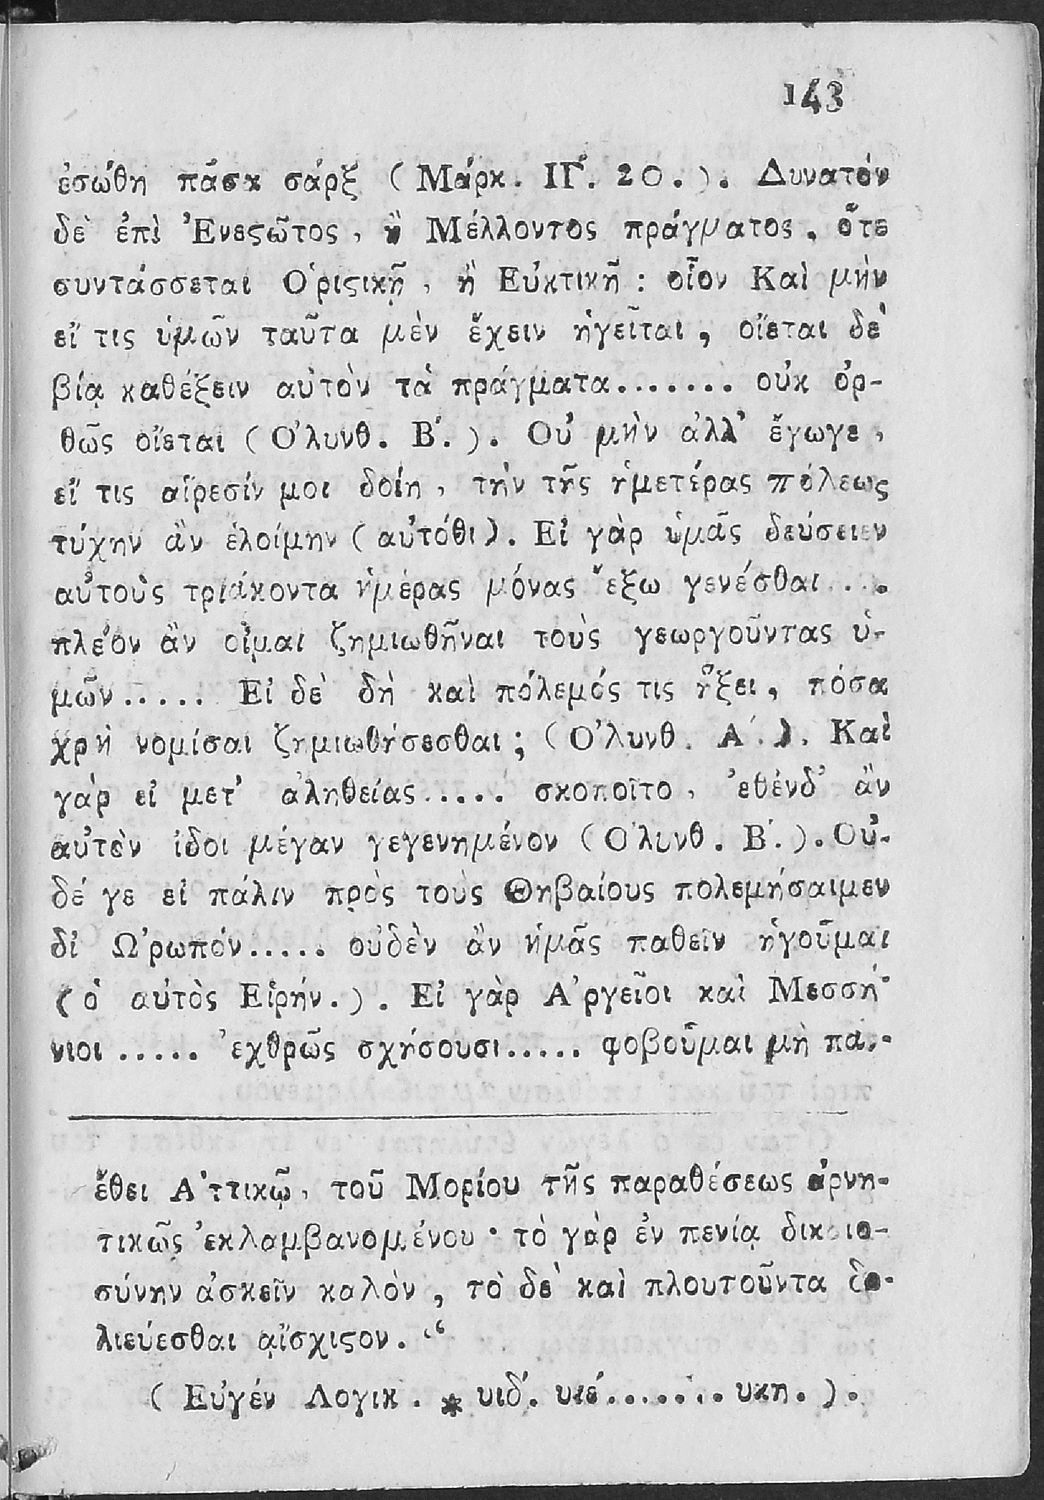 143
ἐσώθη πᾶσα σάρξ (Μάρκ. ΙΓ΄. 20.). Δυνατόν
δὲ ἐπὶ Ἐνεϛῶτος, ἢ Μέλλοντος πράγματος, ὅτε
συντάσσεται Ὁριϛικῇ, ἢ Εὐκτικῇ : οἷον Καὶ μὴν
εἴ τις ὑμῶν ταῦτα μὲν ἔχειν ἡγεῖται, οἴεται δὲ
βίᾳ καθέξειν αὐτὸν τὰ πράγματα....... οὐκ ὀρ-
θῶς οἴεται (Ὀλυνθ. Β΄.). Οὐ μὴν ἀλλ' ἔγωγε,
εἴ τις αἵρεσίν μοι δοίη, τὴν τῆς ἡμετέρας πόλεως
τύχην ἂν ἑλοίμην (αὐτόθι). Εἰ γὰρ ὑμᾶς δεύσειεν
αὐτοὺς τριάκοντα ἡμέρας μόνας ἔξω γενέσθαι....
πλέον ἂν οἶμαι ζημιωθῆναι τοὺς γεωργοῦντας ὑ-
μῶν..... Εἰ δὲ δὴ καὶ πόλεμός τις ἥξει, πόσα
χρὴ νομίσαι ζημιωθήσεσθαι; (Ὀλυνθ. Α΄.). Καὶ
γὰρ εἰ μετ' ἀληθείας..... σκοποῖτο, ἐθένδ' ἂν
αὐτὸν ἴδοι μέγαν γεγενημένον (Ὀλυνθ. Β΄.). Οὐ-
δέ γε εἰ πάλιν πρὸς τοὺς Θηβαίους πολεμήσαιμεν
δι' Ὠρωπόν..... οὐδὲν ἂν ἡμᾶς παθεῖν ἡγοῦμαι
(ὁ αὐτὸς Εἰρήν.). Εἰ γὰρ Ἀργεῖοι καὶ Μεσσή-
νιοι ..... ἐχθρῶς σχήσουσι..... φοβοῦμαι μὴ πά.-
ἔθει Ἀττικῷ, τοῦ Μορίου τῆς παραθέσεως ἀρνη-
τικῶς ἐκλαμβανομένου · τὸ γὰρ ἐν πενίᾳ δικαιο-
σύνην ἀσκεῖν καλὸν, τὸ δὲ καὶ πλουτοῦντα δο-
λιεύεσθαι αἴσχιϛον. “
(Εὐγέν Λογικ. * υιδ΄. υιέ....... υκη.).